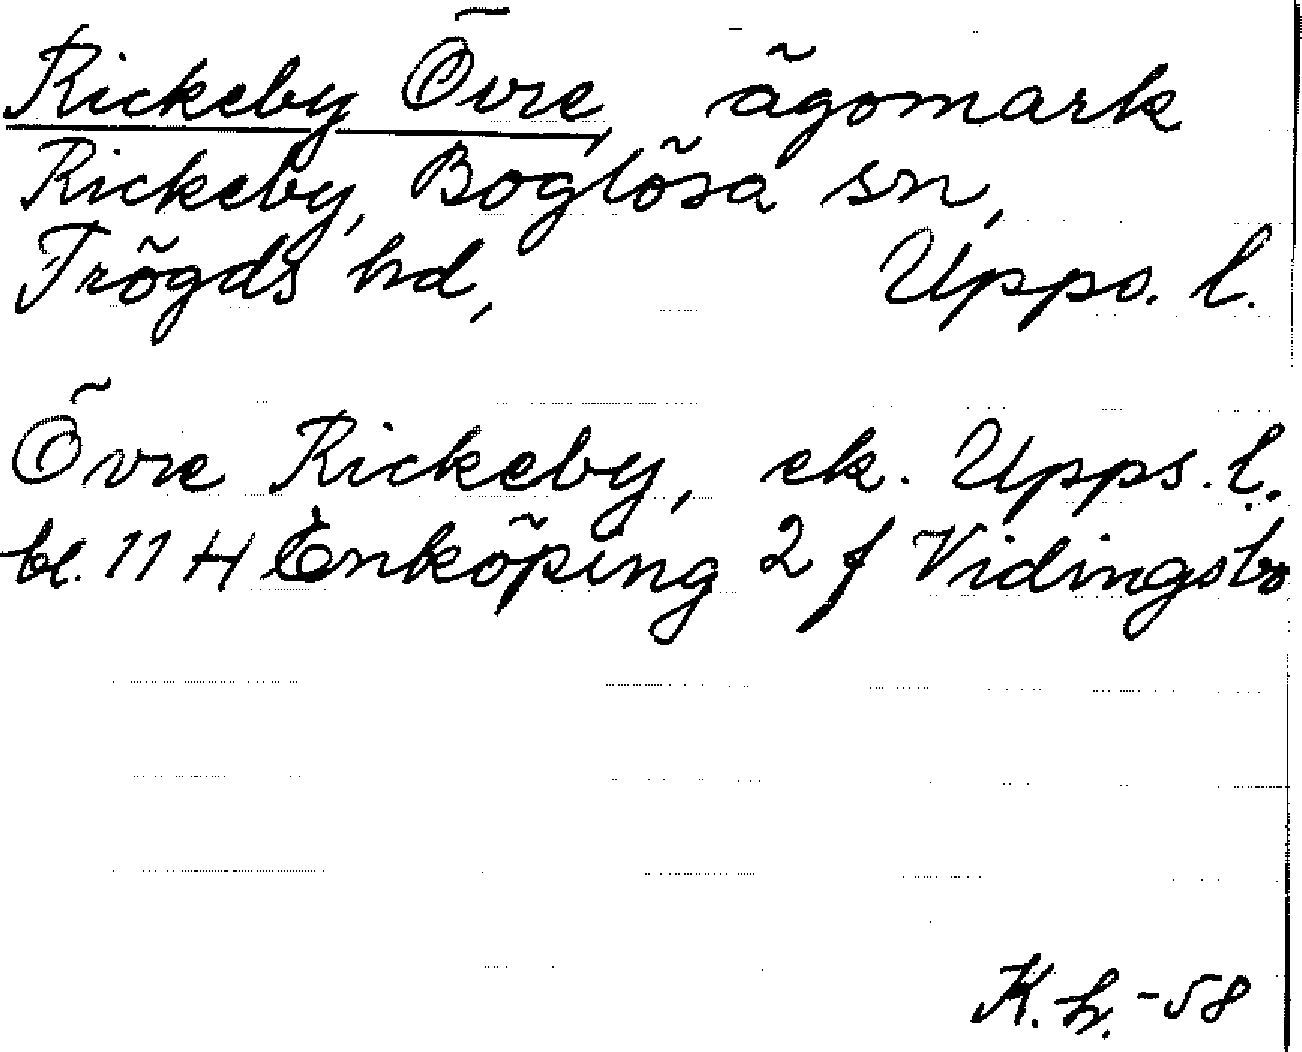 Rickeby Övre, ägomark
Rickeby, Boglösa sn,
Trögds hd, Upps. l.
Övre Rickeby, ek. Upps. l.
bl. 11 H Enköping 2 f Vidingsbo
K. h. -58